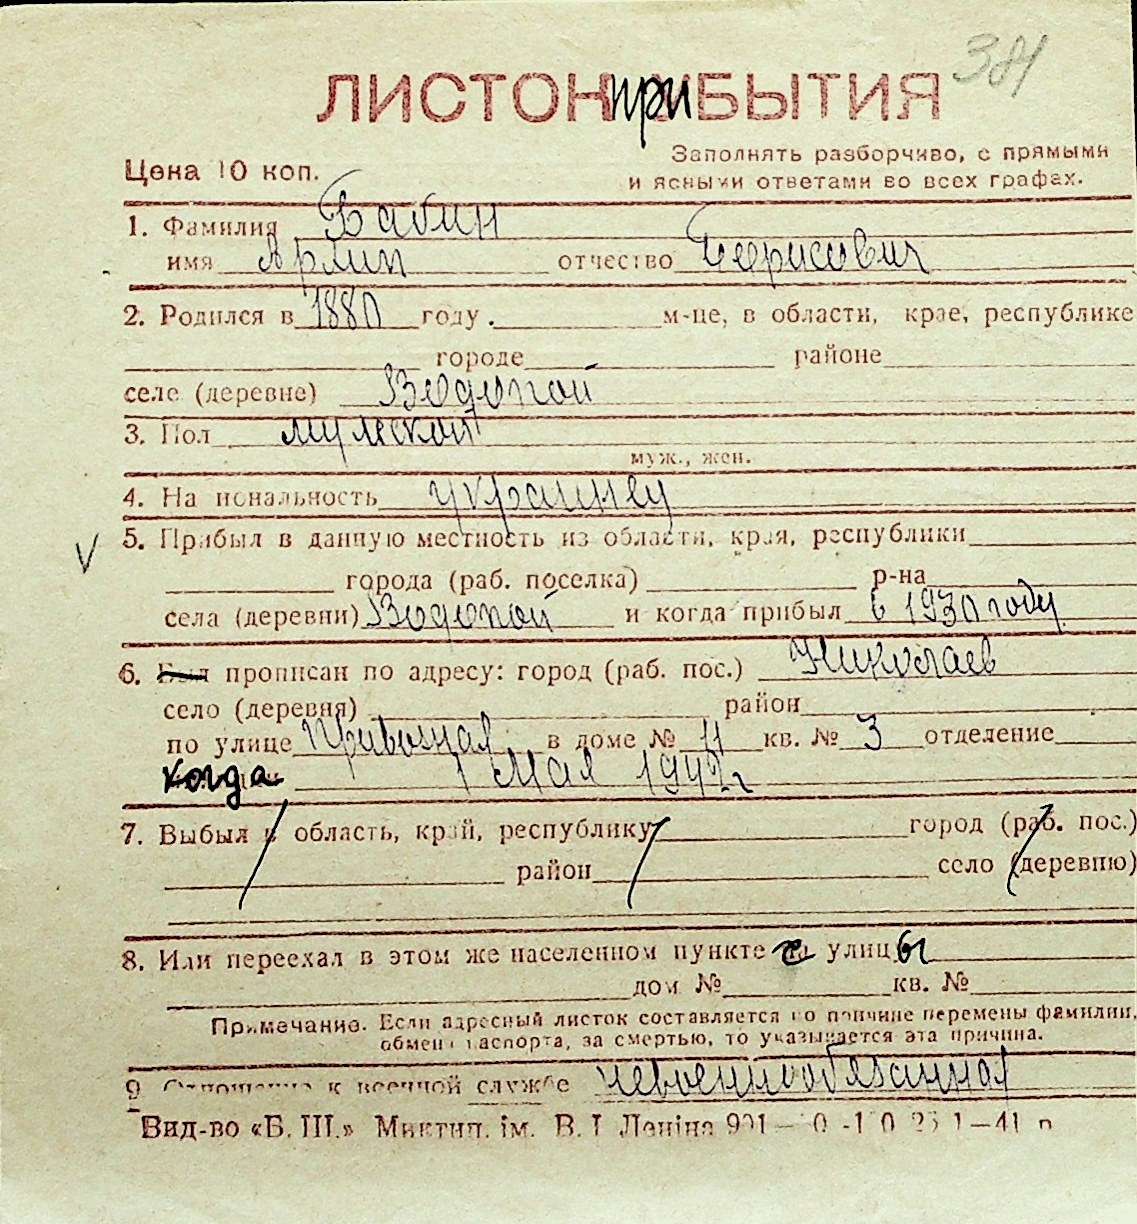 381
ЛИСТОК ПРИБЫТИЯ
Цена 10 коп.
Заполнять разборчиво, с прямыми
и ясными ответами во всех графах.
1. Фамилия Бабин
имя отчество Борисович
2. Родился в 1880 году. м-це, в области, крае, республике
городе районе
селе (деревне) Водопой
3. Пол мужской
муж., жен.
4. Национальность украинец
5. Прибыл в данную местность из области, края, республики
города (раб. поселка) р-на
села (деревни) Водопой и когда прибыл в 1930 году
6. Был прописан по адресу: город (раб. пос.) Николаев
село (деревня) район
по улице Привозная в доме № 11 кв. № 3 отделение
когда 1 Мая 1942 г
7. Выбыл в область, край, республику город (раб. пос.)
район село (деревню)
8. Или переехал в этом же населенном пункте с улицы
дом № кв. №
Примечание. Если адресный листок составляется по причине перемены фамилии,
обмена паспорта, за смертью, то указывается эта причина.
9 Отношение к военной службе невоеннообязанная
Вид-во «Б. Ш.» Миктип. ім. В. І Леніна